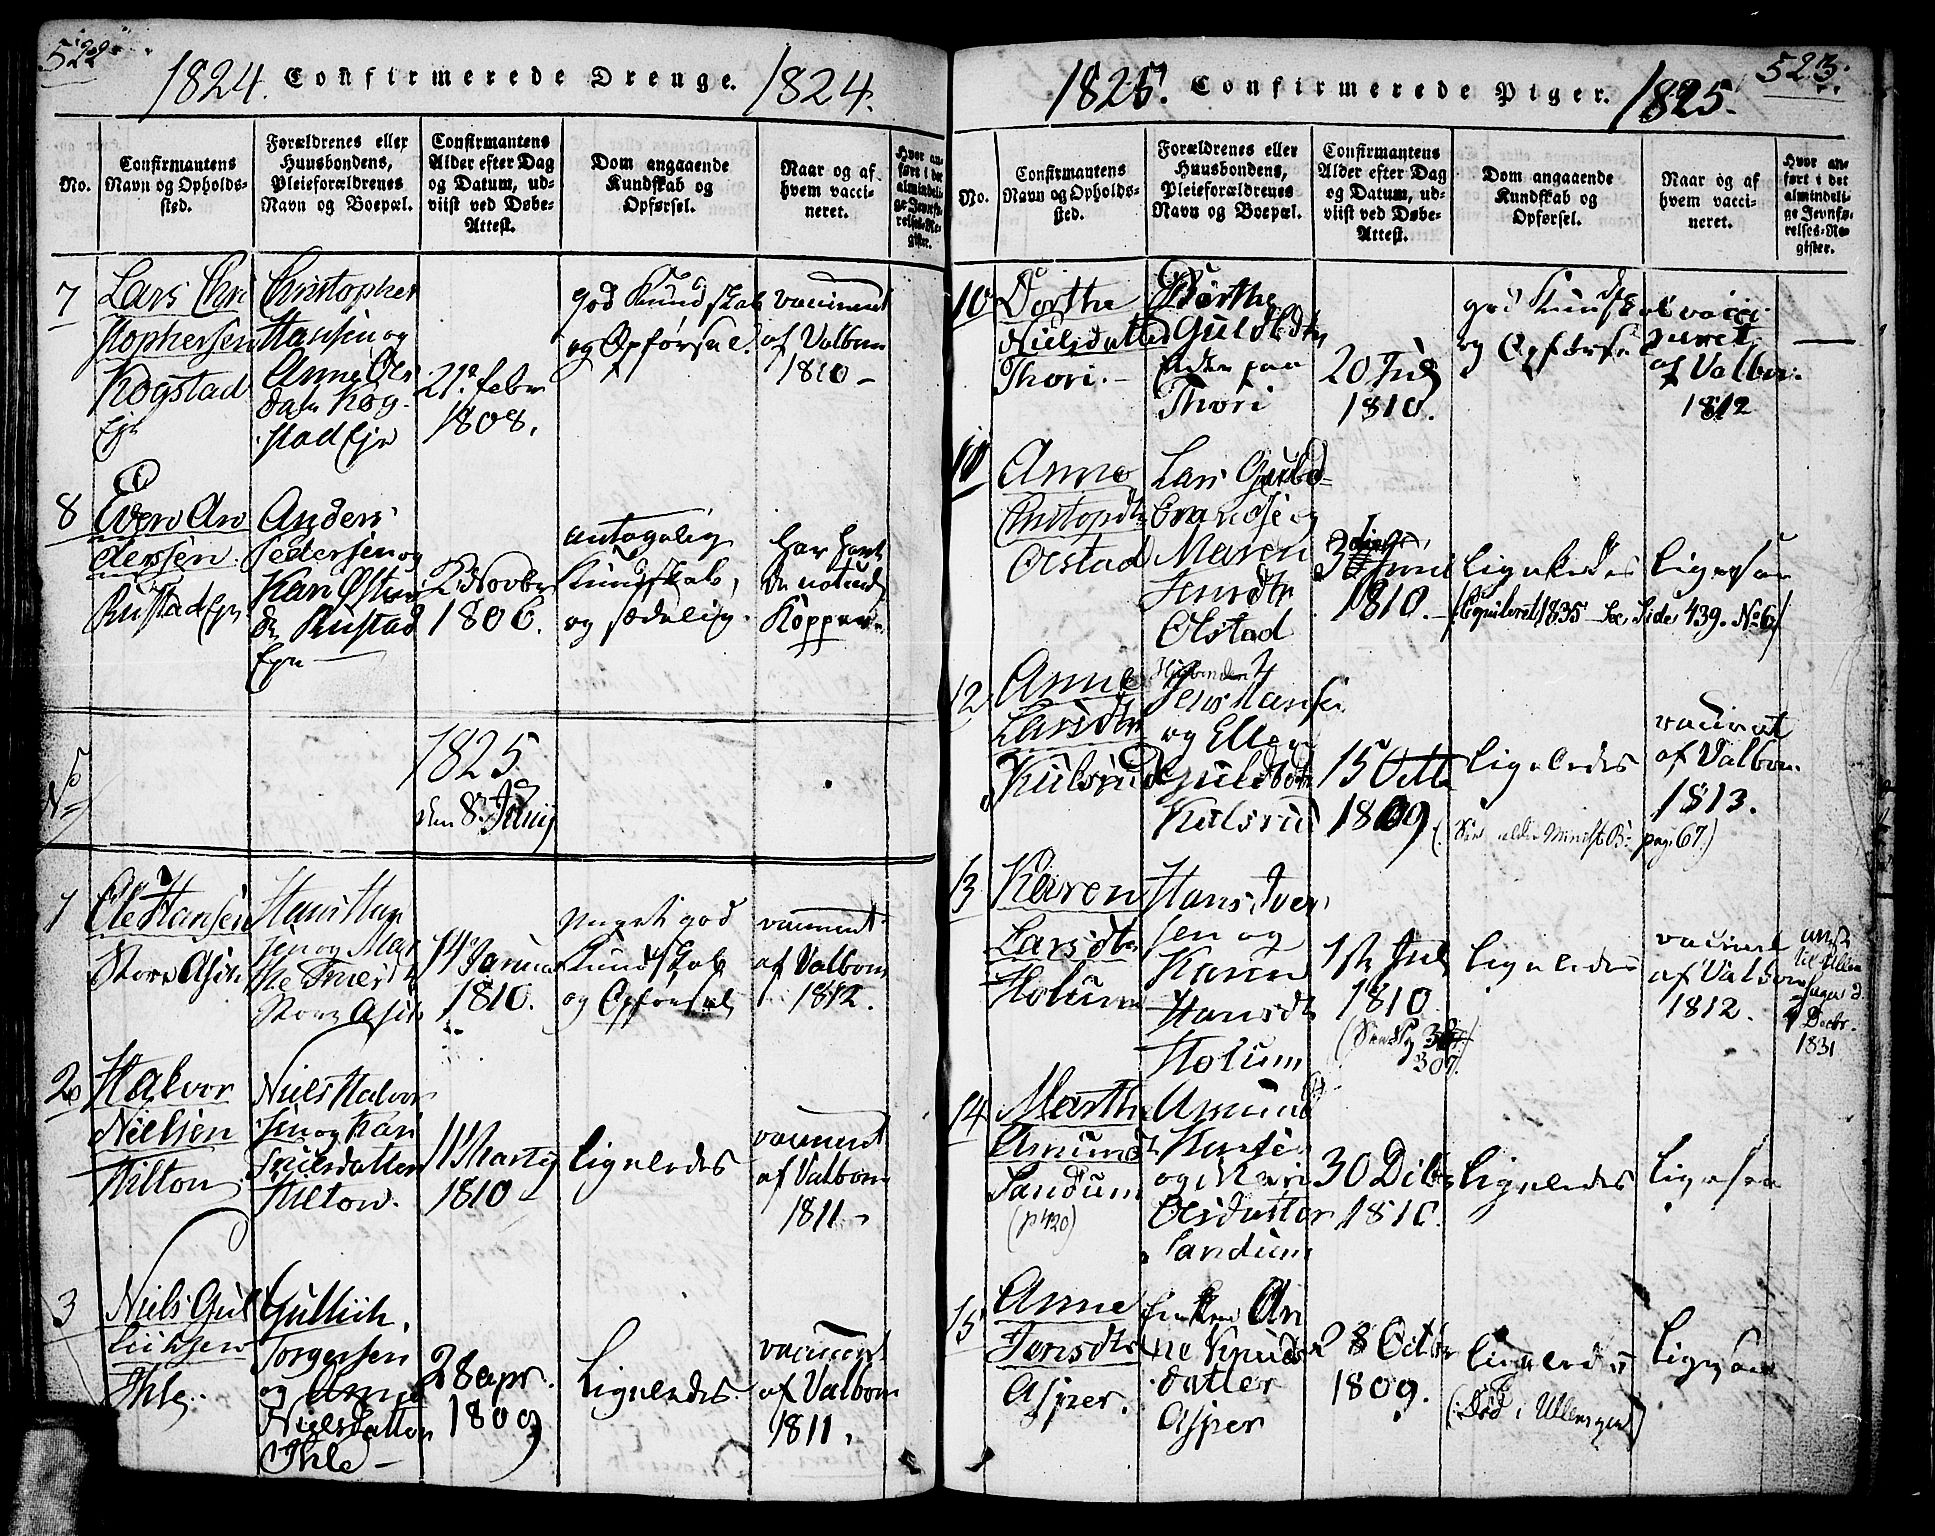 522
1824. Confirmerede Drenge. 1824.
No.
Confirmantens
Navn og Opholds-
sted.
Forældrenes eller
Huusbondens,
Pleieforældrenes
Navn og Boepæl.
Confirmantens
Alder efter Dag
og Datum, ud-
viist ved Døbe-
Attest.
Dom angaaende
Kundskab og
Opførsel.
Naar og af
hvem vacci-
neret.
Hvor an-
ført i det
almindeli-
ge Jevnfø-
relses-Re-
gister.
7
Lars Chri
stophersen
Kogstad
Eje
Christopher
Hansen og
Anne Ols
datr Kog-
stad Eje
21 febr
1808.
god Kundskab
og Opførsel.
vaccineret
af Valbom
1810
8
Even An
dersen
Rustad Eje
Anders
Pedersen og
Kari Østen
dr Rustad
Eje
2 Novbr
1806.
antagelig
Kundskab,
og sædelig.
har havt
de naturl
Kopper
No
1825
den 8 July
1
Ole Hansen
Store Ask
Hans Han
sen og Mar
the
Store Ask
14 Janua
1810.
meget god
Kundskab
og Opførsel
vaccineret
af Valbom
1812.
2
Halvor
Nielsen
Hilton
Niels Halvor
sen og Kari
Truelsdatter
Hilton.
11 Martij
1810
ligeledes
vaccineret
af Valbom
1811
3
Niels Gul
liksen
Ihle
Gullich
Torgersen
og Anne
Nielsdatter
Ihle
28 apr.
1809
ligeledes.
vaccineret
af Valbom
1811.
523.
1825. Confirmerede Piger. 1825.
No.
Confirmantens
Navn og Opholds-
sted.
Forældrenes eller
Huusbondens,
Pleieforældrenes
Navn og Boepæl.
Confirmantens
Alder efter Dag
og Datum, ud-
viist ved Døbe-
Attest.
Dom angaaende
Kundskab og
Opførsel.
Naar og af
hvem vacci-
neret.
Hvor an-
ført i det
almindeli-
ge Jevnfø-
relses-Re-
gister.
10
Dorthe
Nielsdatter
Thori.
Børthe
Guldbdtr
Enke paa
Thori
20 July
1810.
god Kundskab
og Opførsel
vacci
neret
af Valbom
1812
11
Anne
Christopdtr
Olstad
Lars Guldb
brandse og
Maren
Jensdtr
Olstad
Juni
1810.
ligeledes
ligesaa
1835 See, Side 439. No 6
12
Anne
Larsdtr
Kulsrud
Huusbonden
Jens Hansen
og Ellen
Guldbdtr
Kulsrud
15 Octb
1809
ligeledes
vaccineret
af Valbom.
1813.
(See ældre Minist. B. pag. 67.)
13
Karen
Larsdtr
Holum
Hans Iver
sen og
Karen
Hansdtr
Holum
1ste July
1810.
307
ligeledes
vaccineret
af Valbom
1812.
Decbr.
1831
14
Marthe
Amundsdt
Sandum
(p 420)
Amund
Hansen
og Mari
Olsdatter
Sandum
30 Dcbr
1810.
ligeledes
ligesaa
15
Anne
Jensdtr
Asper.
Enken An
ne Knuds
datter
Asper
28 Octbr
1809.
ligeledes
(Død i Ullensager)
ligesaa